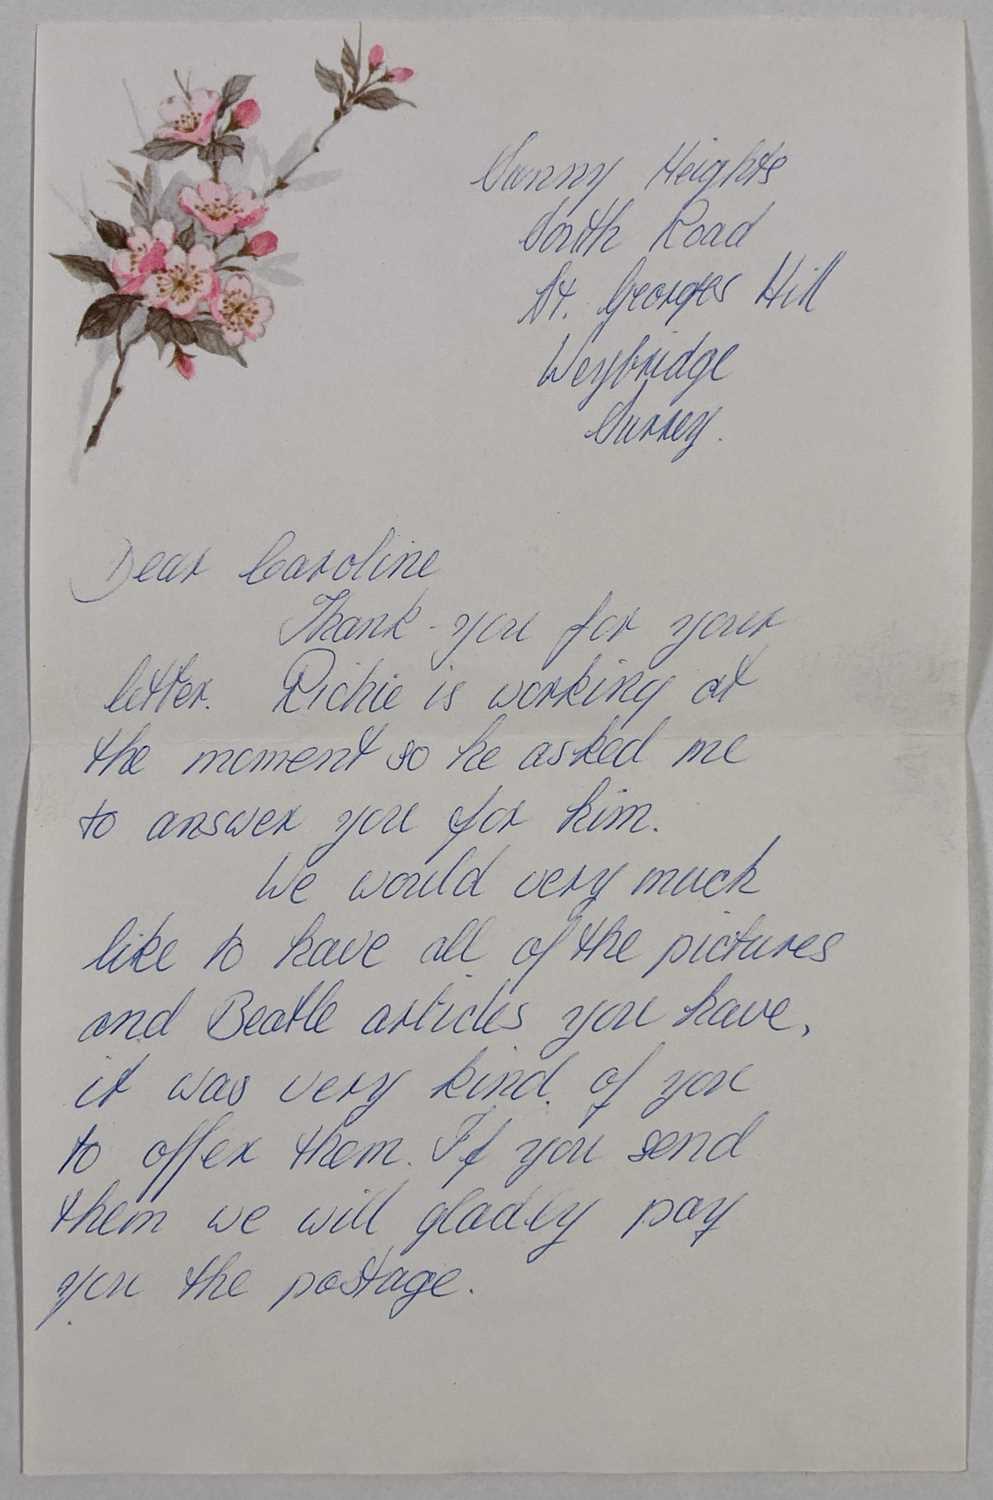 Sunny Heights
South Road
St. Georges Hill
Weybridge
Surrey.
Dear Caroline
Thank-you for your
letter. Richie is working at
the moment so he asked me
to answer you for him.
We would very much
like to have all of the pictures
and Beatle articles you have,
it was very kind of you
to offer them. If you send
them we will gladly pay
you the postage.